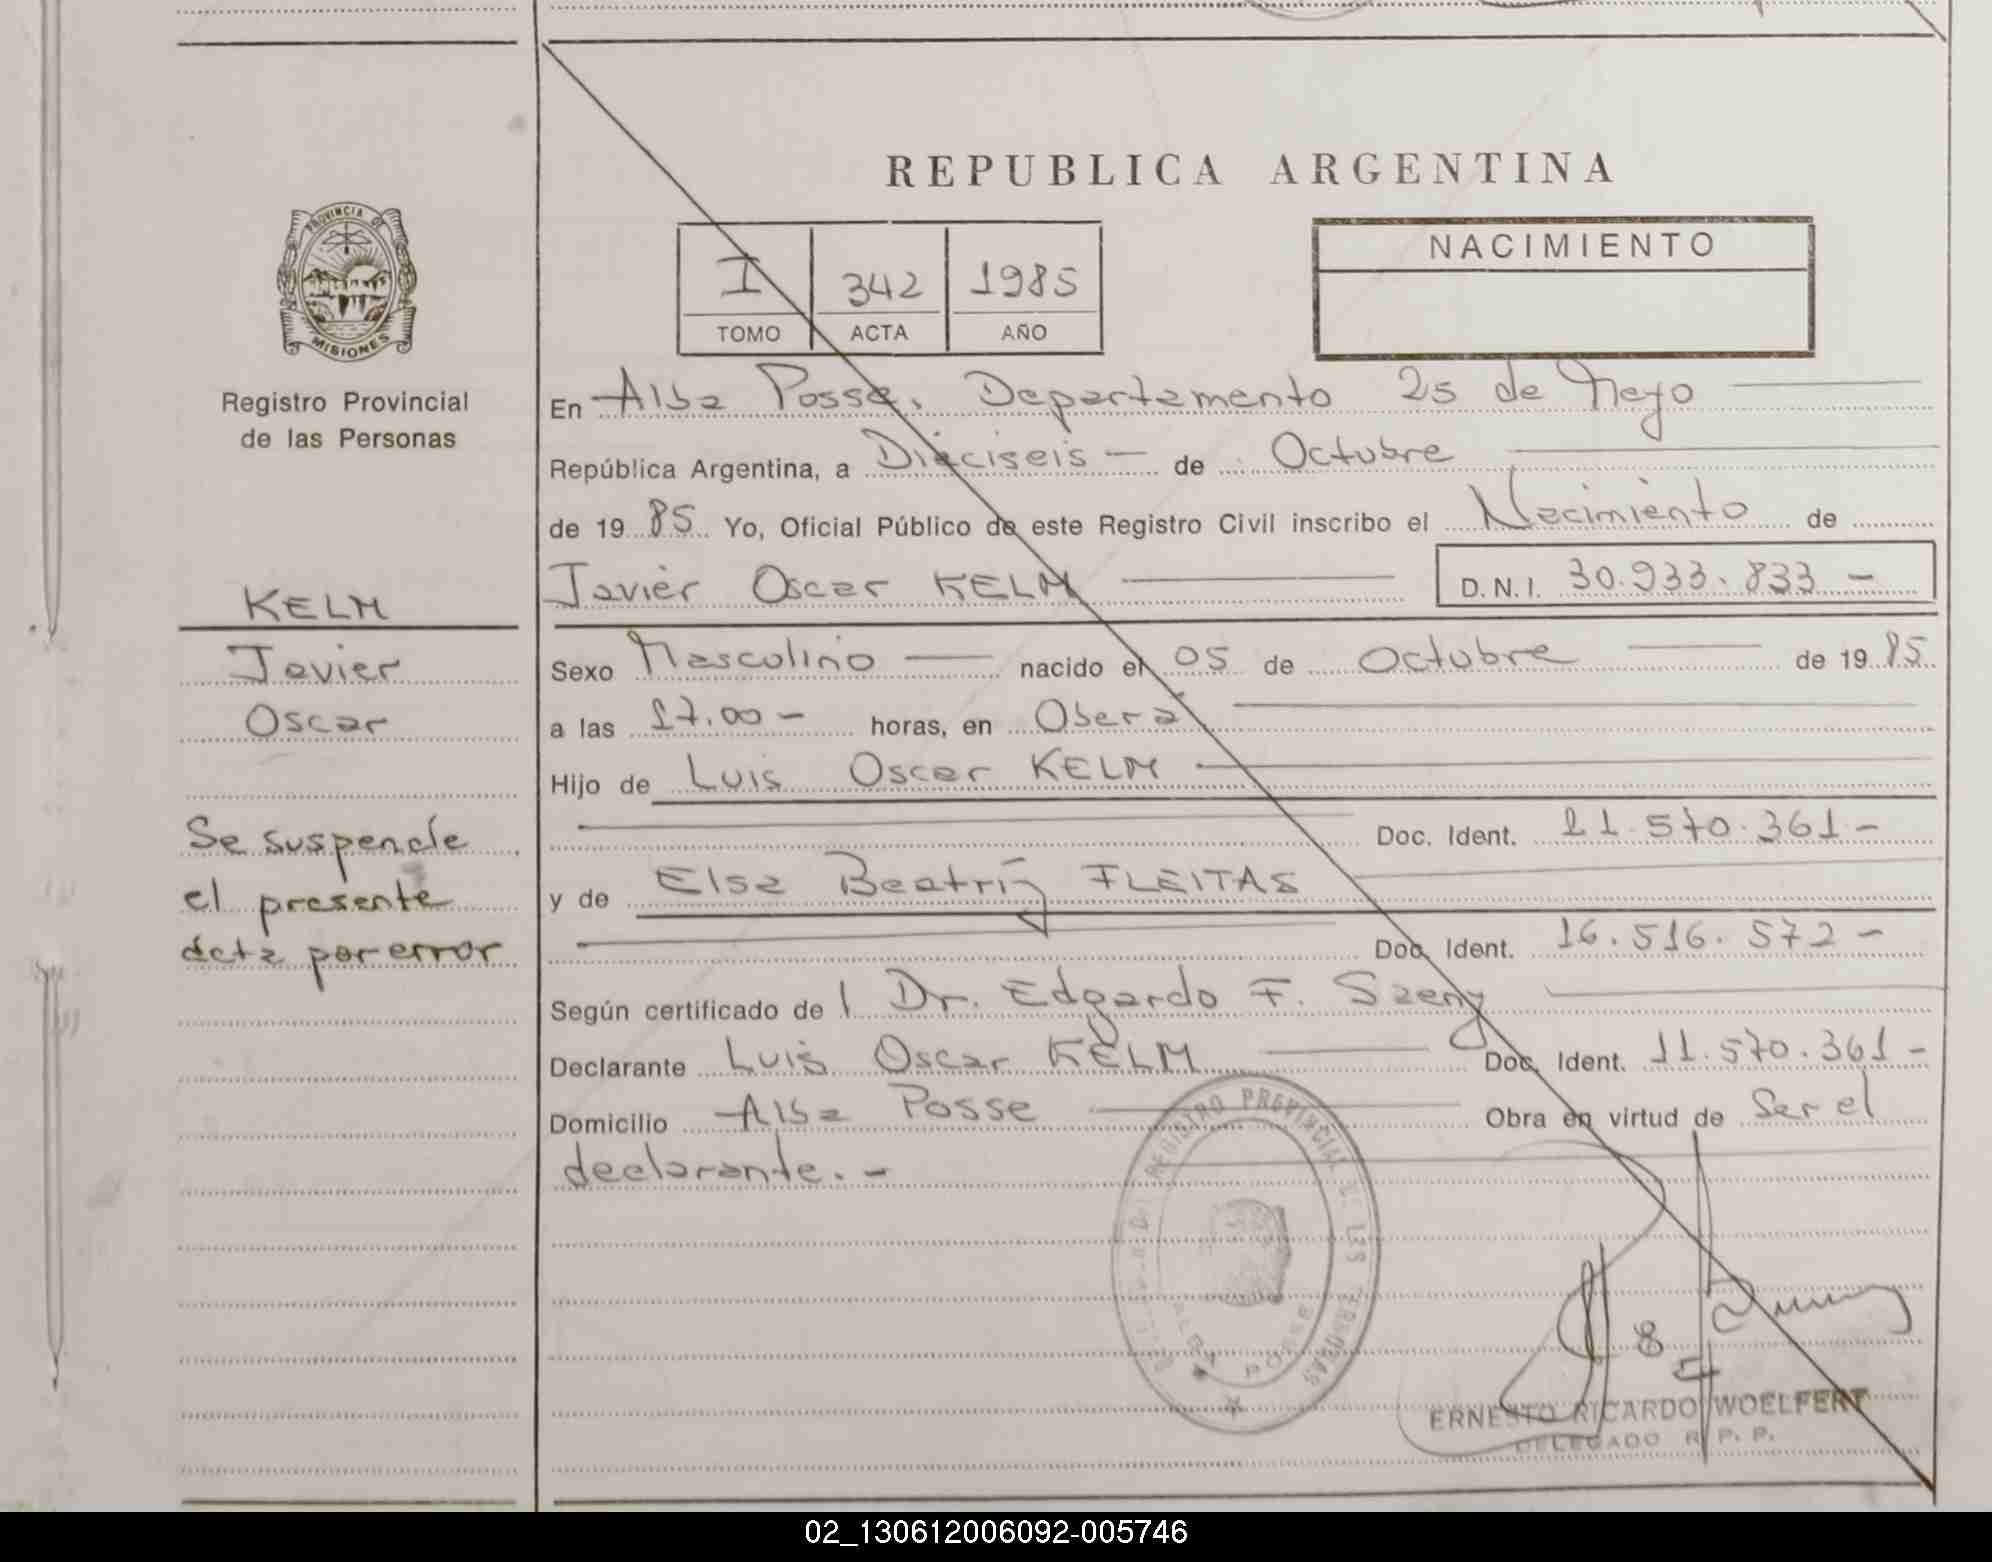 REPUBLICA ARGENTINA
PROVINCIA DE
MISIONES
Registro Provincial
de las Personas
I 342 1985
TOMO ACTA AÑO
NACIMIENTO
En Alba Posse, Departamento 25 de Mayo
República Argentina, a Dieciseis — de Octubre
de 1985 Yo, Oficial Público de este Registro Civil inscribo el Nacimiento de
Javier Oscar KELM D.N.I. 30.933.833 -
KELM
Javier
Oscar
Se suspende
el presente
acta por error
Sexo Masculino — nacido el 05 de Octubre — de 1985
a las 17.00 - horas, en Oberá
Hijo de Luis Oscar KELM
Doc. Ident. 11.570.361 -
y de Elsa Beatríz FLEITAS
Doc. Ident. 16.516.572 -
Según certificado de l Dr. Edgardo F. Szeny
Declarante Luis Oscar KELM Doc. Ident. 11.570.361 -
Domicilio Alba Posse Obra en virtud de Ser el
declarante. -
REGISTRO PROVINCIAL DE LAS PERSONAS
ALBA POSSE
ERNESTO RICARDO WOELFERT
DELEGADO R. P. P.
02_130612006092-005746